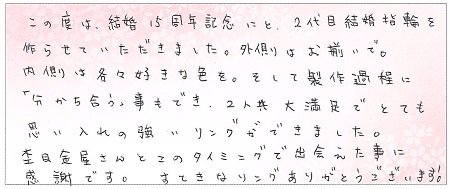 この度は、結婚15周年記念にと、2代目結婚指輪を
作らせていただきました。外側はお揃いで。
内側は各々好きな色を。そして製作過程に
「分かち合う」事もでき、2人共大満足でとても
思い入れの強いリングができました。
杢目金屋さんとこのタイミングで出会えた事に
感謝です。 すてきなリングありがとうございます!